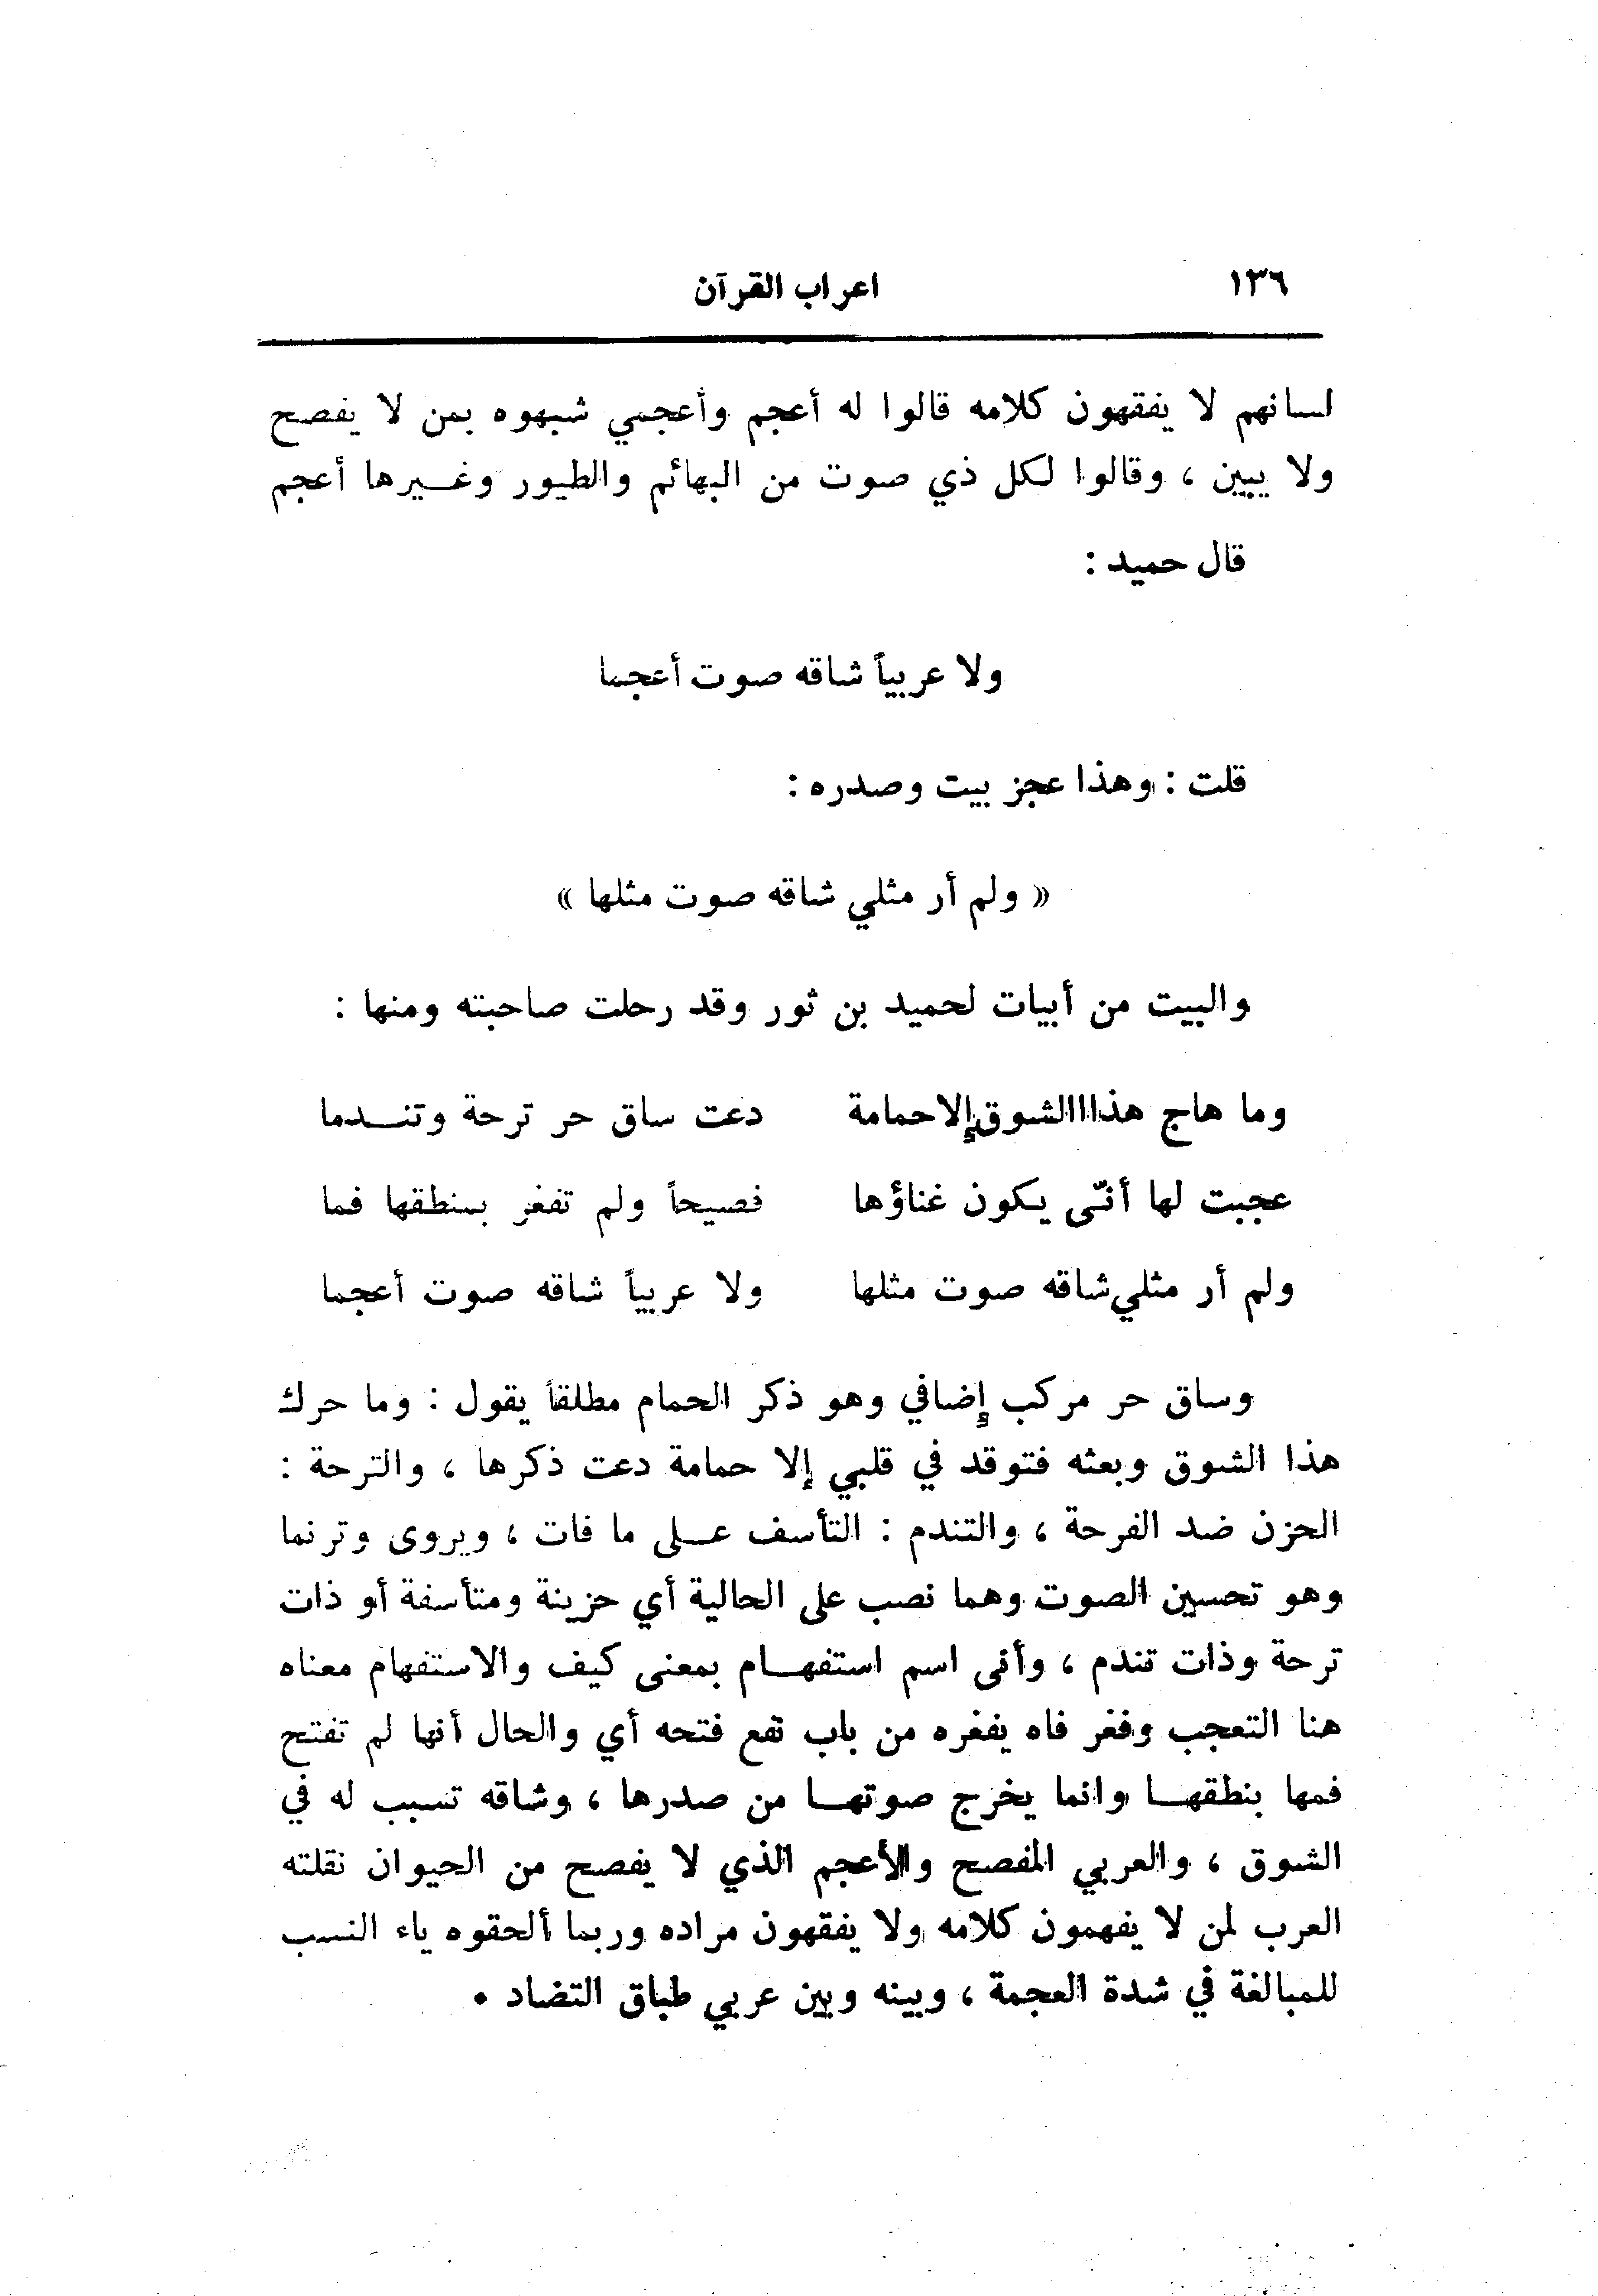 ١٣٦ اعراب القرآن
لسانهم لا يفقهون كلامه قالوا له أعجم وأعجمي شبهوه بمن لا يفصح
ولا يبين ، وقالوا لكل ذي صوت من البهائم والطيور وغيرها أعجم
قال حميد :
ولا عربياً شاقه صوت أعجما
قلت : وهذا عجز بيت وصدره :
« ولم أر مثلي شاقه صوت مثلها »
والبيت من أبيات لحميد بن ثور وقد رحلت صاحبته ومنها :
وما هاج هذا الشوق إلا حمامة دعت ساق حر ترحة وتندما
عجبت لها أنّى يكون غناؤها فصيحاً ولم تفغر بمنطقها فما
ولم أر مثلي شاقه صوت مثلها ولا عربياً شاقه صوت أعجما
وساق حر مركب إضافي وهو ذكر الحمام مطلقاً يقول : وما حرك
هذا الشوق وبعثه فتوقد في قلبي إلا حمامة دعت ذكرها ، والترحة :
الحزن ضد الفرحة ، والتندم : التأسف على ما فات ، ويروى وترنما
وهو تحسين الصوت وهما نصب على الحالية أي حزينة ومتأسفة أو ذات
ترحة وذات تندم ، وأنى اسم استفهام بمعنى كيف والاستفهام معناه
هنا التعجب وفغر فاه يفغره من باب نفع فتحه أي والحال أنها لم تفتح
فمها بنطقها وانما يخرج صوتها من صدرها ، وشاقه تسبب له في
الشوق ، والعربي المفصح والأعجم الذي لا يفصح من الحيوان نقلته
العرب لمن لا يفهمون كلامه ولا يفقهون مراده وربما ألحقوه ياء النسب
للمبالغة في شدة العجمة ، وبينه وبين عربي طباق التضاد .